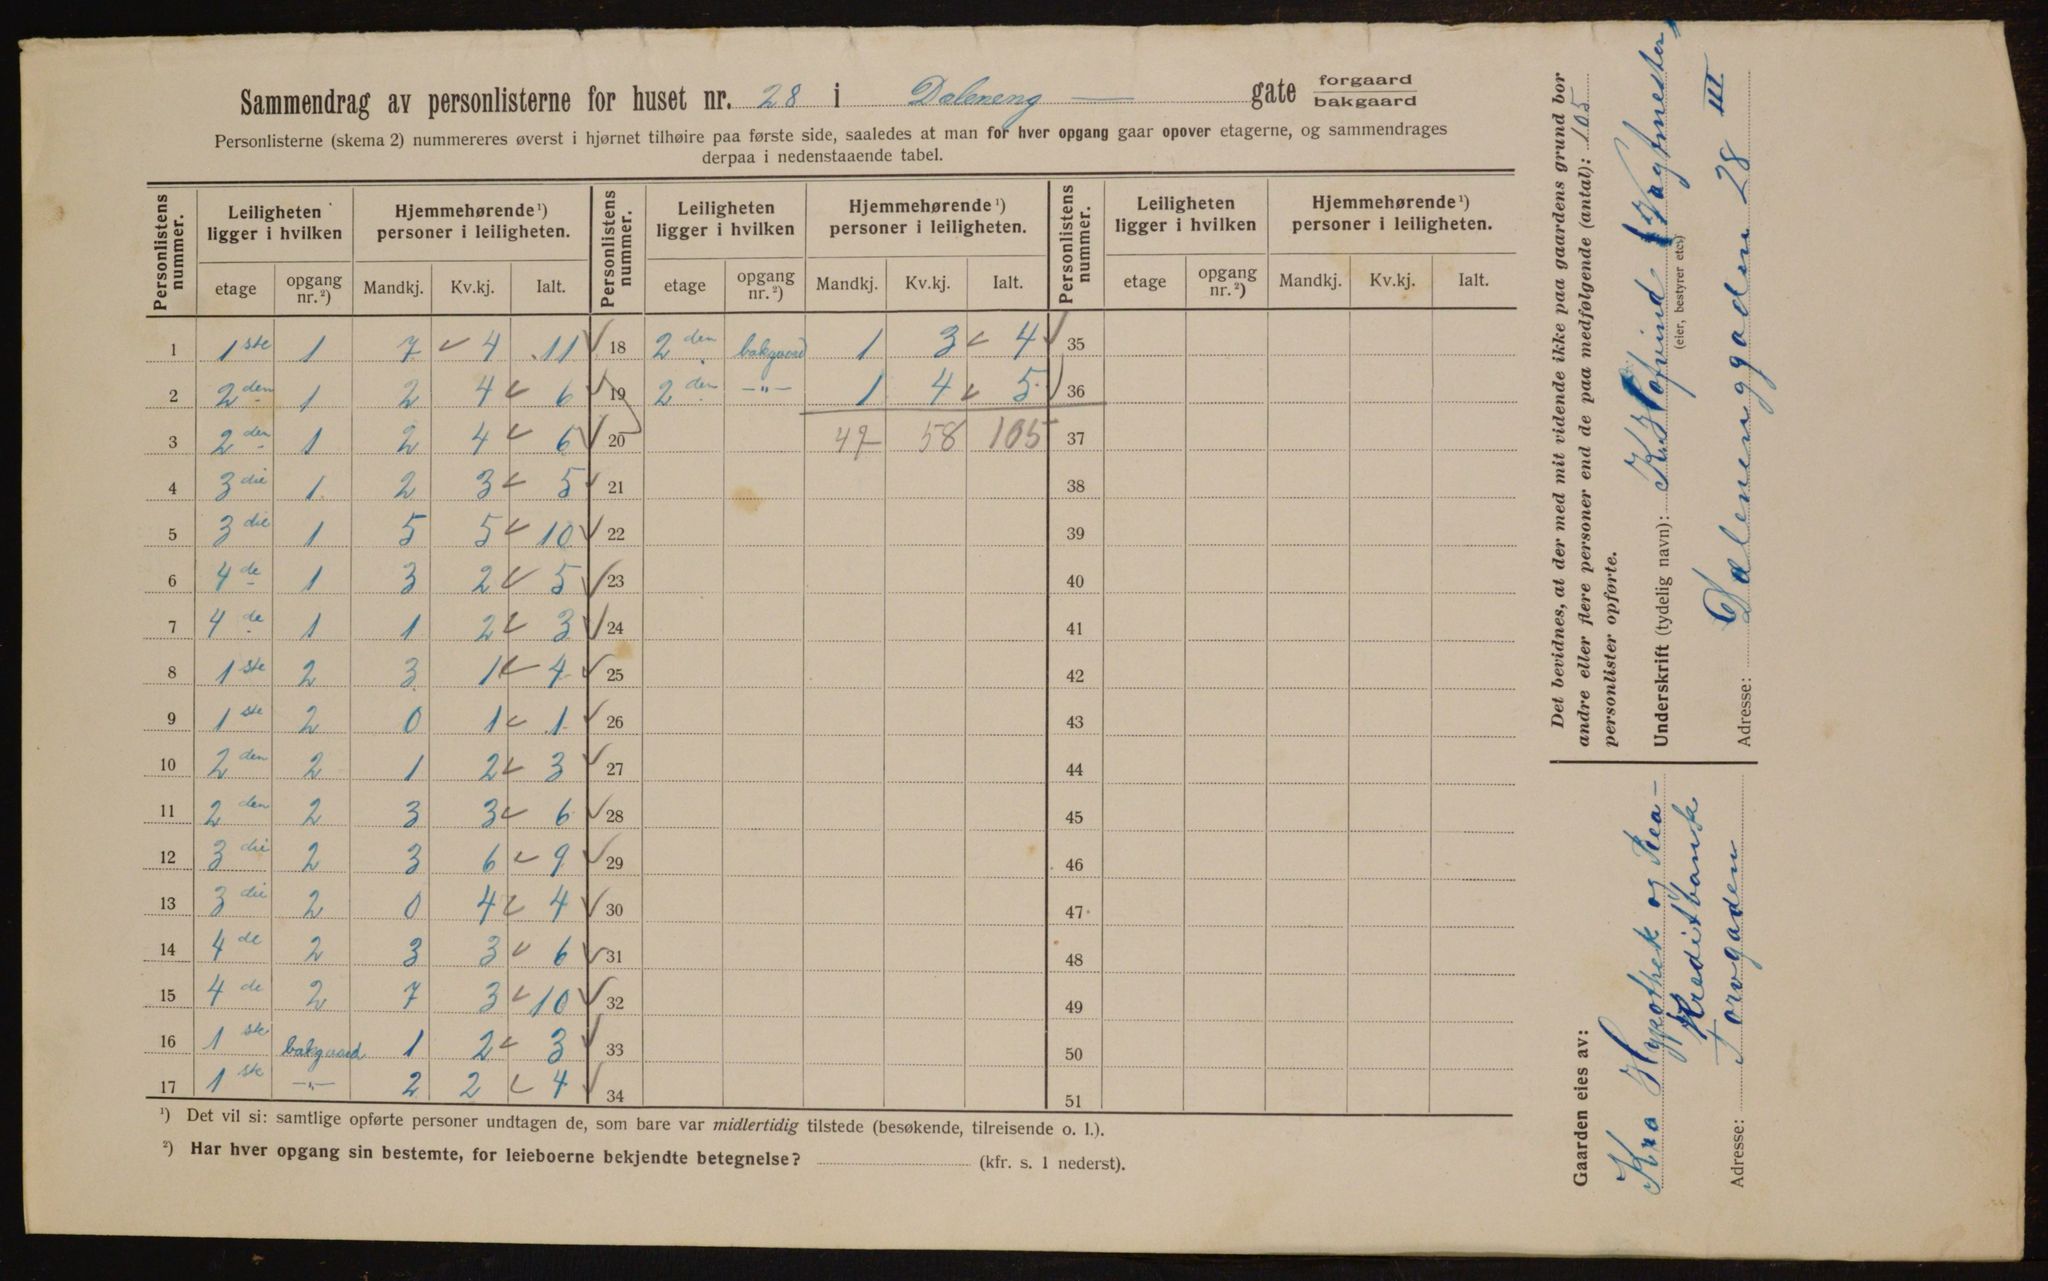 Sammendrag av personlisterne for huset nr. 28 i Daleneng — gate forgaard
bakgaard
Personlisterne (skema 2) nummereres øverst i hjørnet tilhøire paa første side, saaledes at man for hver opgang gaar opover etagerne, og sammendrages
derpaa i nedenstaaende tabel.
Personlistens nummer. Leiligheten ligger i hvilken Hjemmehørende ¹) personer i leiligheten. Personlistens nummer. Leiligheten ligger i hvilken Hjemmehørende ¹) personer i leiligheten. Personlistens nummer. Leiligheten ligger i hvilken Hjemmehørende ¹) personer i leiligheten.
etage opgang nr. ²) Mandkj. Kv.kj. Ialt. etage opgang nr. ²) Mandkj. Kv.kj. Ialt. etage opgang nr. ²) Mandkj. Kv.kj. Ialt.
1 1ste 1 7 4 11 18 2den bakgaard 1 3 4 35
2 2den 1 2 4 6 19 2den —"— 1 4 5 36
3 2den 1 2 4 6 20 47 58 105 37
4 3die 1 2 3 5 21 38
5 3die 1 5 5 10 22 39
6 4de 1 3 2 5 23 40
7 4de 1 1 2 3 24 41
8 1ste 2 3 1 4 25 42
9 1ste 2 0 1 1 26 43
10 2den 2 1 2 3 27 44
11 2den 2 3 3 6 28 45
12 3die 2 3 6 9 29 46
13 3die 2 0 4 4 30 47
14 4de 2 3 3 6 31 48
15 4de 2 7 3 10 32 49
16 1ste bakgaard 1 2 3 33 50
17 1ste —"— 2 2 4 34 51
¹) Det vil si: samtlige opførte personer undtagen de, som bare var midlertidig tilstede (besøkende, tilreisende o. l.).
²) Har hver opgang sin bestemte, for leieboerne bekjendte betegnelse? (kfr. s. 1 nederst).
Det bevidnes, at der med mit vidende ikke paa gaardens grund bor
andre eller flere personer end de paa medfølgende (antal): 105
personlister opførte.
Underskrift (tydelig navn): K. Hofvind Vagtmester
(eier, bestyrer etc.)
Adresse: Dælenenggaden 28 III
Gaarden eies av:
Kra Hypothek og Rea-
Kreditbank
Adresse: Torvgaden